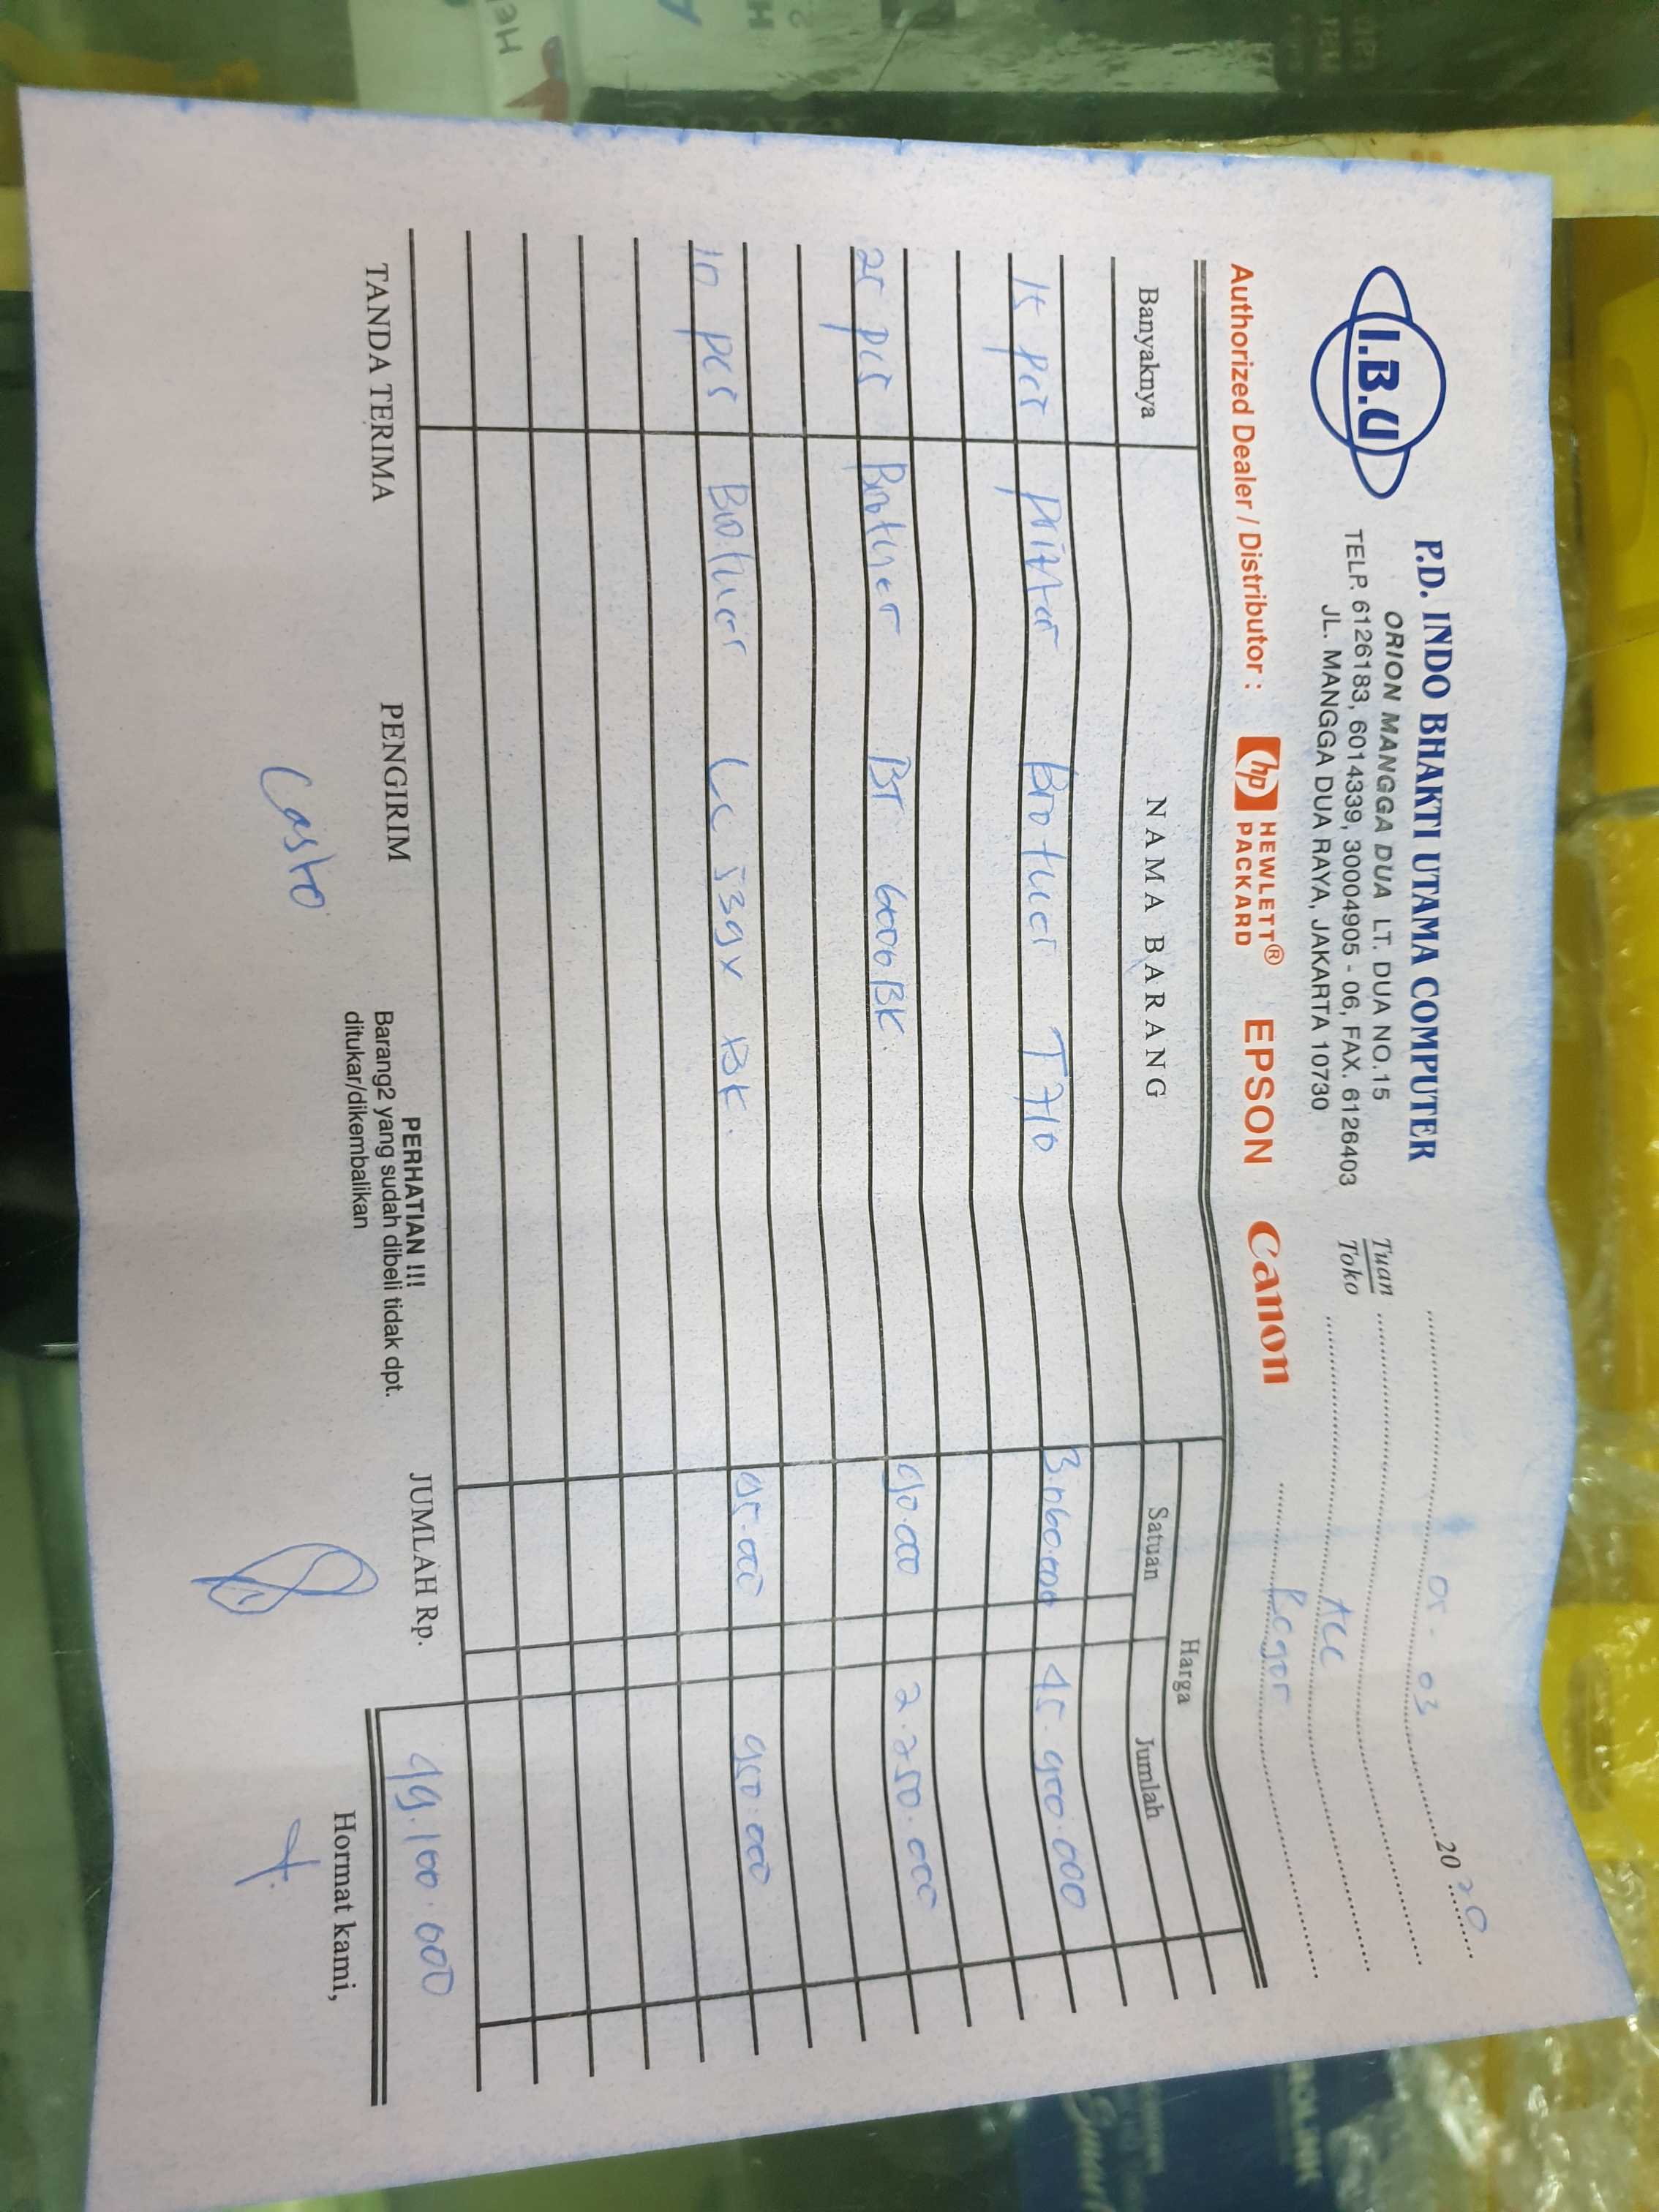 I.B.U
P.D. INDO BHAKTI UTAMA COMPUTER
ORION MANGGA DUA LT. DUA NO.15
TELP. 6126183, 6014339, 30004905 - 06, FAX. 6126403
JL. MANGGA DUA RAYA, JAKARTA 10730
05 - 03 2020
Tuan
Toko
ACC
Bogor
Authorized Dealer / Distributor : hp HEWLETT® PACKARD EPSON Canon
Banyaknya NAMA BARANG Harga
Satuan Jumlah
15 pcs Printer Brother T710 3.060.000 45.900.000
25 pcs Brother BT 6000BK. 90.000 2.250.000
10 pcs Brother LC 539X BK. 95.000 950.000
TANDA TERIMA PENGIRIM
PERHATIAN !!!
Barang2 yang sudah dibeli tidak dpt.
ditukar/dikembalikan
JUMLAH Rp. 49.100.000
Casto
Hormat kami,